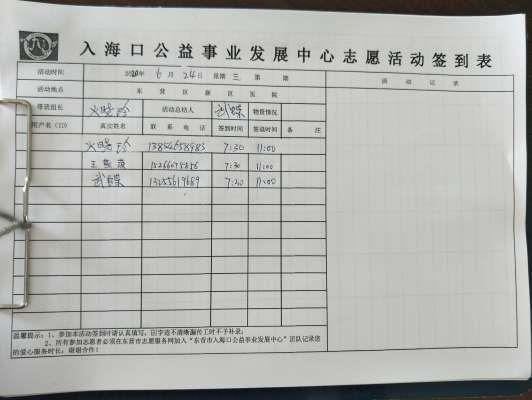 入海口公益事业发展中心志愿活动签到表
活动时间 2020年 6 月 24 日 星期 三 第 期 活 动 记 录
活动地点 东 营 区 新 区 医 院
带班组长 火晓玲 活动总结人 武蝶 物资情况
用户名（ID） 真实姓名 联 系 电 话 签到时间 签退时间 备 注
火晓玲 7:30 11:00
王 7:30 11:00
武蝶 7:20 11:00
温馨提示：1、参加本活动签到时请认真填写，因字迹不清晰漏传工时不予补录；
2、所有参加志愿者必须在东营市志愿服务网加入“东营市入海口公益事业发展中心”团队记录您
的爱心服务时长，谢谢合作！